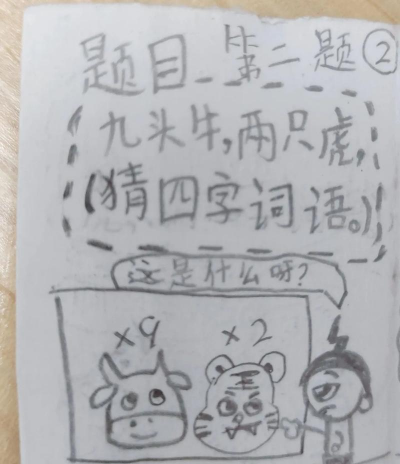 题目 第二题②
九头牛,两只虎,
(猜四字词语。)
这是什么呀?
×9 ×2
王
2